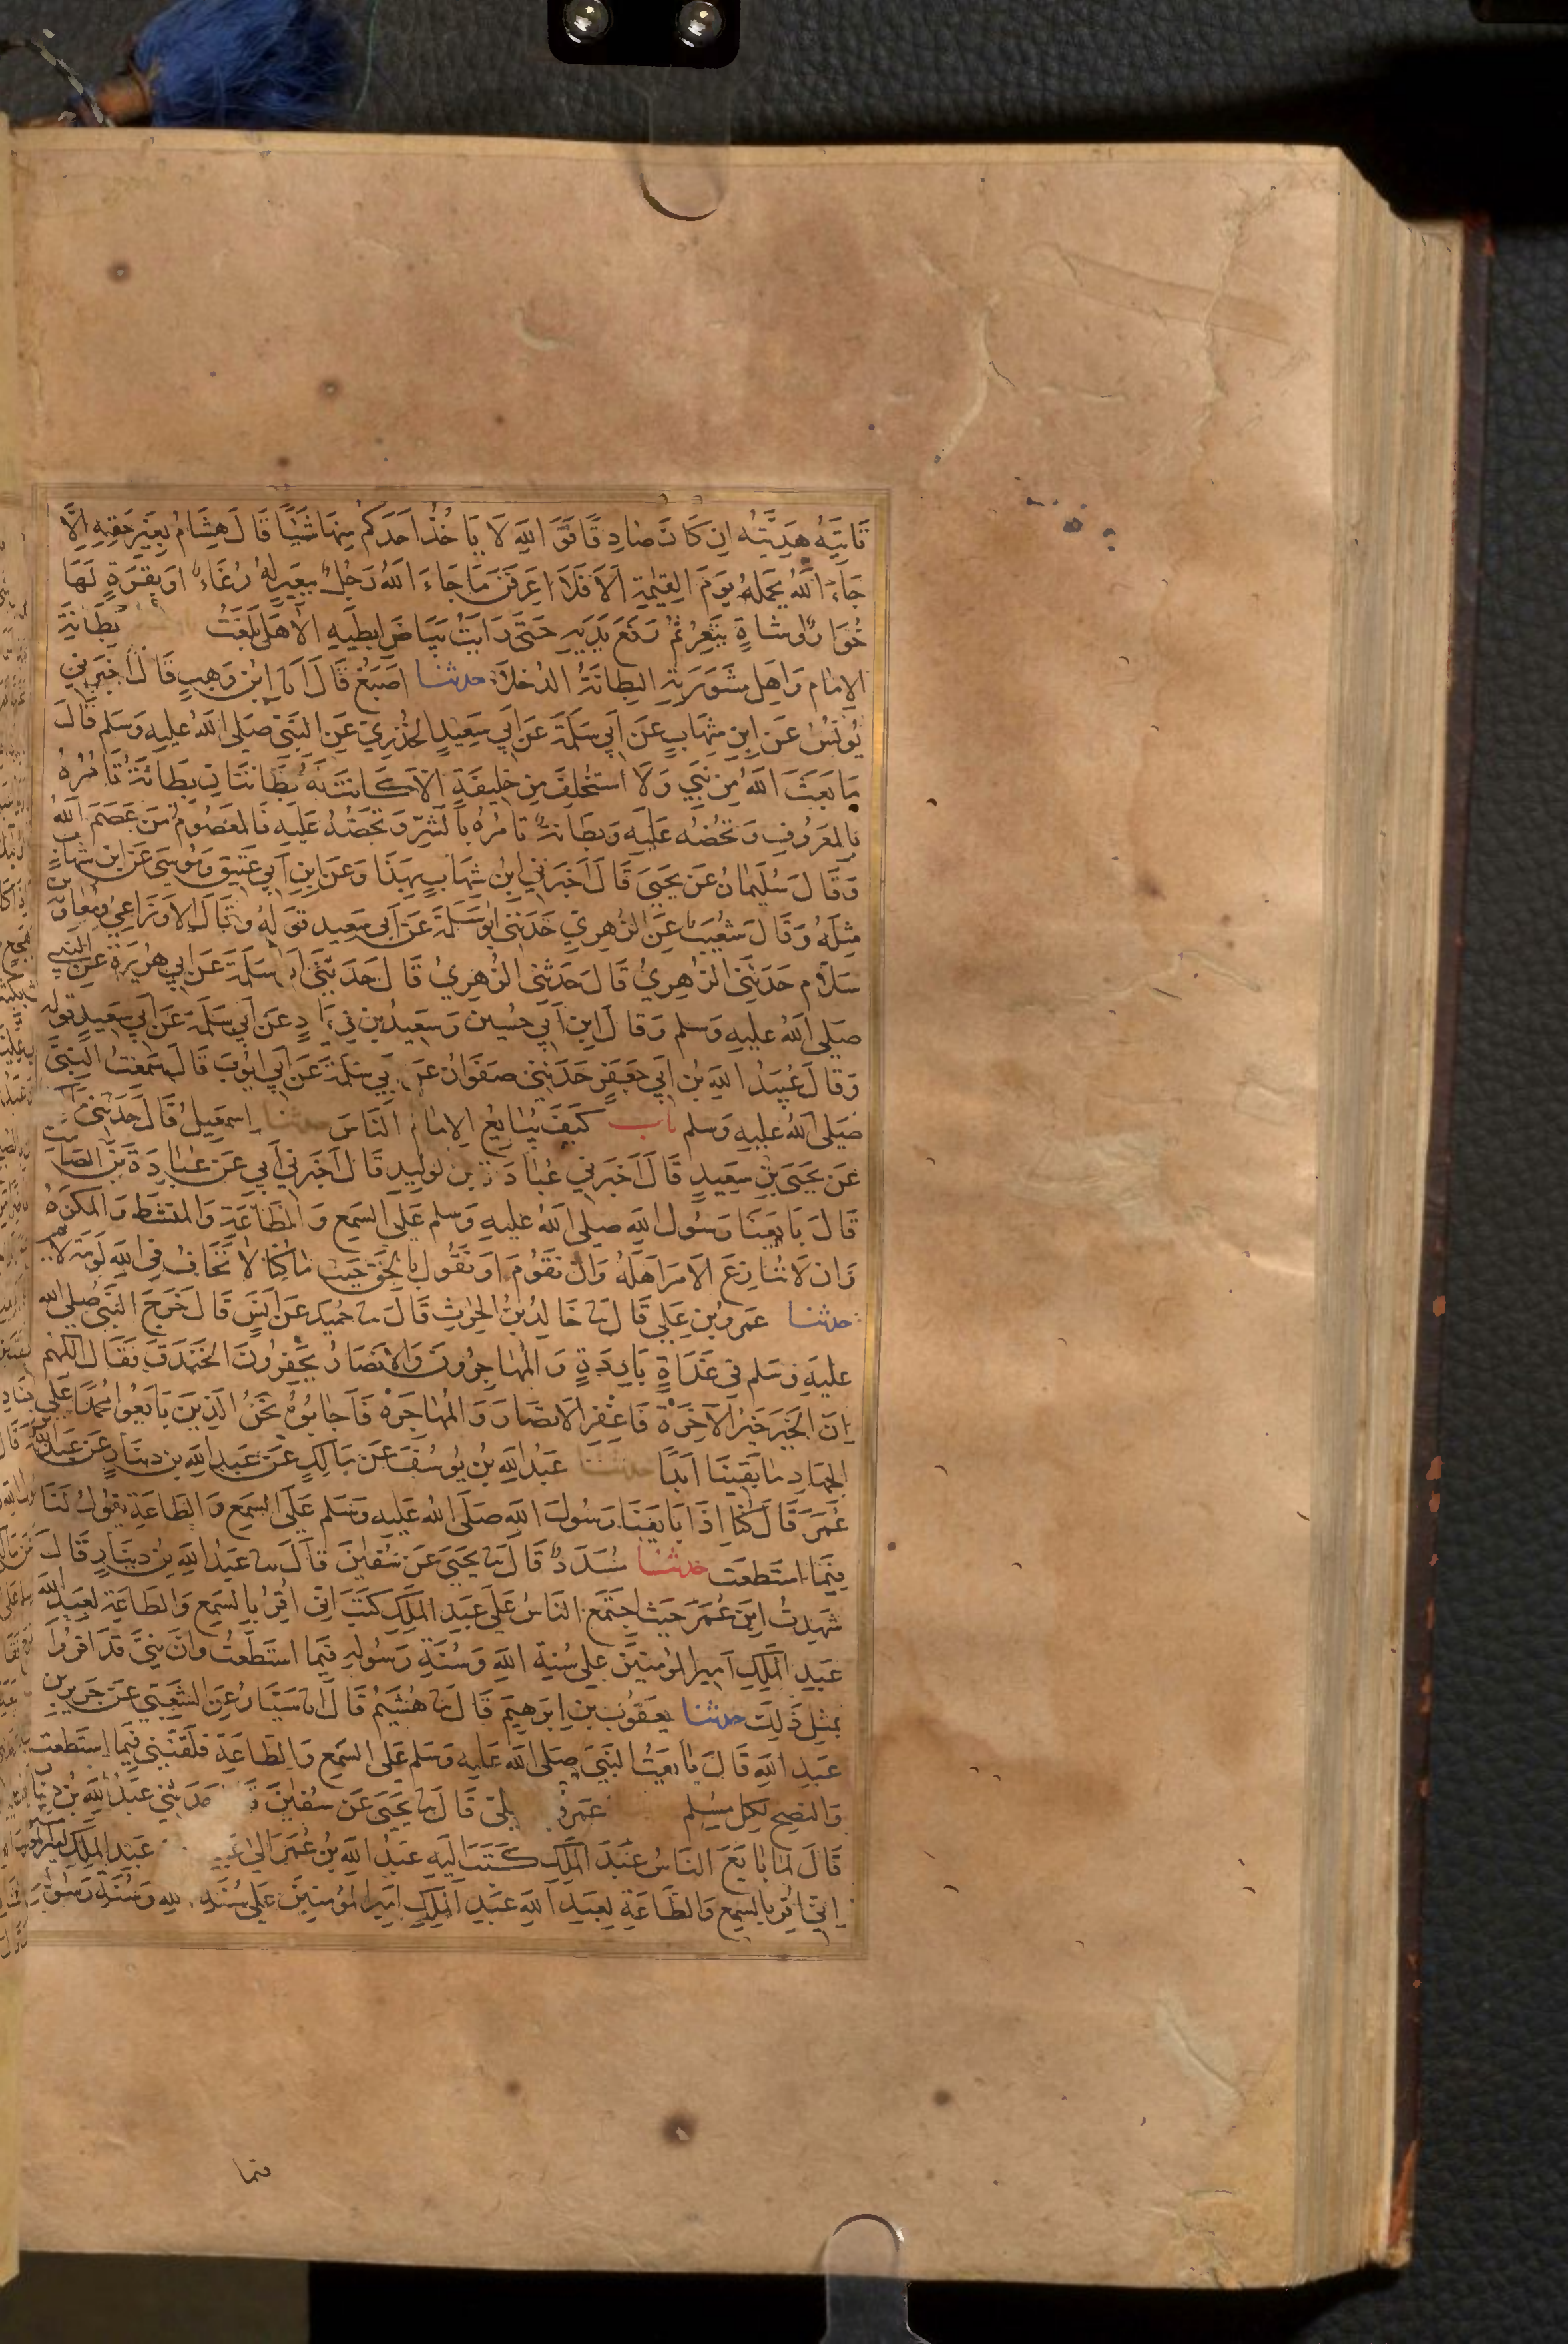 تَاتيَهُ هَدِيَّتُه اِن كَانَ صَادِقًا فَوَ اللهِ لَا يَاخُذُ اَحَدكُم مِنهَا شَيئًا قَالَ هِشَامُ بِغَيرِ حَقِهِ اِلَّا
جَاءَ اللهُ يَحمِلهُ يَومَ القِيٰمَةِ اَلَا فَلَا اَعرِفَنَ مَا جَاءَ اللهُ رَجُلٌ بِبَعِيرٍ لهُ رُغَاءٌ اَو بِقَرَةٍ لَهَا
خُوَارٌ او شاةٍ تَيعِرُ ثمُ رَفَعَ يَدَيهِ حَتَّى رَايَتُ بَيَاضَ ابطَيهِ اَلَا هَل بَلغَتُ بِطَانَةِ
الاِمَامِ وَاهلِ مَشوَرَتِهِ البِطَانَةُ الدُخَلَاءُ حدثنا اَصبَغُ قَالَ اَنا ابنُ وَهبٍ قَالَ اَخبَرَني
يُونسُ عَن ابنِ شِهَابٍ عَن اَبي سَلَمَةَ عَن اَبي سَعِيدٍ الخُدرِيّ عَن النَبيِّ صَلى اللهُ عليهِ وَسَلم قَالَ
مَا بَعَثَ اللهُ مِن نَبيٍ وَلَا استُخلِفَ مِن خَلِيفَةٍ الا كَانَت لَهُ بِطَانتَانِ بِطَانَةٌ تَامُرُهُ
بِالمَعرُوفِ وَتَحُضُه عَلَيهِ وَبِطَانَةٌ تَامُرُهُ بِالشَرِّ وَتَحُضُهُ عَلَيهِ فَالمعَصُومُ مَن عَصَمَ اللهُ
وَقَالَ سُلَيمَانُ عَن يَحيَى قَالَ اَخبَرَني ابنُ شِهَابٍ بِهذَا وَعَن ابنِ اَبي عَتيقٍ وَمُوسَى عَن ابنِ شهَابٍ
مِثلَهُ وَقَالَ شُعَيبٌ عَن الزُهرِيّ حَدَثَني اَبُو سَلَمَةَ عَن اَبي سَعيدٍ قَولهُ وَقَالَ الاَوزَاعِيُ وَمُعَاوِيَة بن
سَلَامٍ حَدَثَنِي الزُهرِيُ قَالَ حَدَثَني الزُهرِيُ قَالَ حَدَثَنَي اَبُو سَلَمَةَ عَن اَبي هُرَيرَةَ عَن النَبِي
صَلى اللهُ عَليهِ وَسلم وَقَالَ ابن اَبي حُسَين وَسَعِيدُ بن زِيَادٍ عَن اَبي سَلَمَةَ عَن اَبي سَعِيدٍ قَولَه
وَقَالَ عُبَيدُ اللهِ بنُ اَبي جَعفَرٍ حَدَثَني صَفوَانُ عَن اَبي سَلَمَةَ عَن اَبي اَيُّوبَ قَالَ سَمعتُ النَبيَّ
صَلى اللهُ عليهِ وَسلم باب كَيفَ يُبَايعُ الاِمَامُ النَاسَ حدثنا اِسمَعِيلُ قَالَ حَدَثَنيِ
عَن يَحيَى بنِ سَعِيدٍ قَالَ اَخبَرَني عُبَادَةُ بن لوَليدِ قَالَ اَخبَرَني اَبي عَن عُبَادَةَ بنِ الصَامت
قَالَ بَايَعنَا رَسُولَ اللهِ صلى اللهُ عليهِ وَسلم عَلَى السَمعِ وَالطَاعَةِ وَالمنشَطِ وَالمَكرَهِ
وَان لَا نُنَازِعَ الاَمرَ اَهلَهُ وَان نَقُومَ اَو نَقُولَ بِالحَقِّ حَيثُ مَا كُنَّا لَا نَخَافُ فِي اللهِ لَومَةَ لَائم
حدثنا عَمرُو بن عَلِيٍ قَالَ ثنا خَالِدُ بنُ الحٰرثِ قَالَ ثنا حُمَيد عَن اَنَسٍ قَالَ خَرَجَ النَبيُّ صَلى الله
عَليهِ وَسَلم فِي غَدَاةٍ بَارِدَةٍ وَالمُهَاجِرُونَ وَالاَنصَارُ يَحفِرُونَ الخَندَقَ فَقَالَ اللهُم
اِنَ الخَيرَ خَيرُ الآخِرَة فَاغفِر الاَنصَارَ وَالمُهَاجَرَه فَاَجَابُوهُ نَحنُ الذِينَ بَايَعُوا مُحَمدًا عَلى
الجِهَادِ مَا بَقِينَا اَبَدًا حدثنا عَبدُ اللهِ بنُ يُوسُفَ عَن مَالِكٍ عَن عَبدِ اللهِ بن دِينَارٍ عَن عَبدِ اللهِ بن
عُمَرَ قَالَ كُنَّا اِذَا بَايَعنَا رَسُولَ اللهِ صَلَى اللهُ عَليهِ وَسَلم عَلَى السَمعِ وَالطَاعَةِ يَقُولُ لَنَا
فِيمَا استَطَعت حدثنا مُسَدَدٌ قَالَ ثنا يَحيَى عَن سُفيٰنَ قَالَ ثنا عَبدُ اللهِ بنُ دِينَارٍ قَالَ
شَهِدتُ ابنَ عُمَرَ حَيثُ اجتَمَعَ النَاسُ عَلَى عَبدِ المَلِكِ كَتَبَ اِنّي اُقِرُ بِالسَمعِ وَالطَاعَةِ لِعَبدِ الله
عَبدِ المَلِكِ اَمِيرِ المؤمنِينَ عَلى سُنَةِ اللهِ وَسُنَّةِ رَسُولِهِ فِيمَا استَطَعتُ وَانَّ بَنِيَّ قَد اَقرُوا
بِمثلِ ذَلِكَ حدثنا يَعقوُبُ بن اِبرَهِيمَ قَالَ ثنا هُشَيمُ قَالَ انا سَيَّارُ عَن الشَعبي عَن جَرِير بن
عَبدِ اللهِ قَالَ بَايَعتُ النَبيَ صَلى اللهُ عَليه وَسَلم عَلى السَمعِ وَالطَاعَةِ فَلَقَّنَنِي فِيمَا استَطَعت
وَالنصحِ لِكُلِ مُسلِمٍ عَمرُو قَالَ ثنا يَحيَى عَن سُفيٰنَ حَدَثَني عَبدُ اللهِ بنُ دِينَار
قَالَ لمَا بَايَعَ النَاسُ عَبدَ المَلِك كَتَبَ اِلَيهِ عَبدُ اللهِ بنُ عُمَرَ اِلى عَبدِ المَلِكِ اَمِيرِ المُؤ
اِنّي اُقِر بِالسَمعِ وَالطَاعَةِ لِعَبدِ اللهِ عَبدِ المَلِكِ اَمِيرِ المؤمِنِينَ عَلى سُنَةِ اللهِ وَسُنَّةِ رَسُولِهِ
فيما